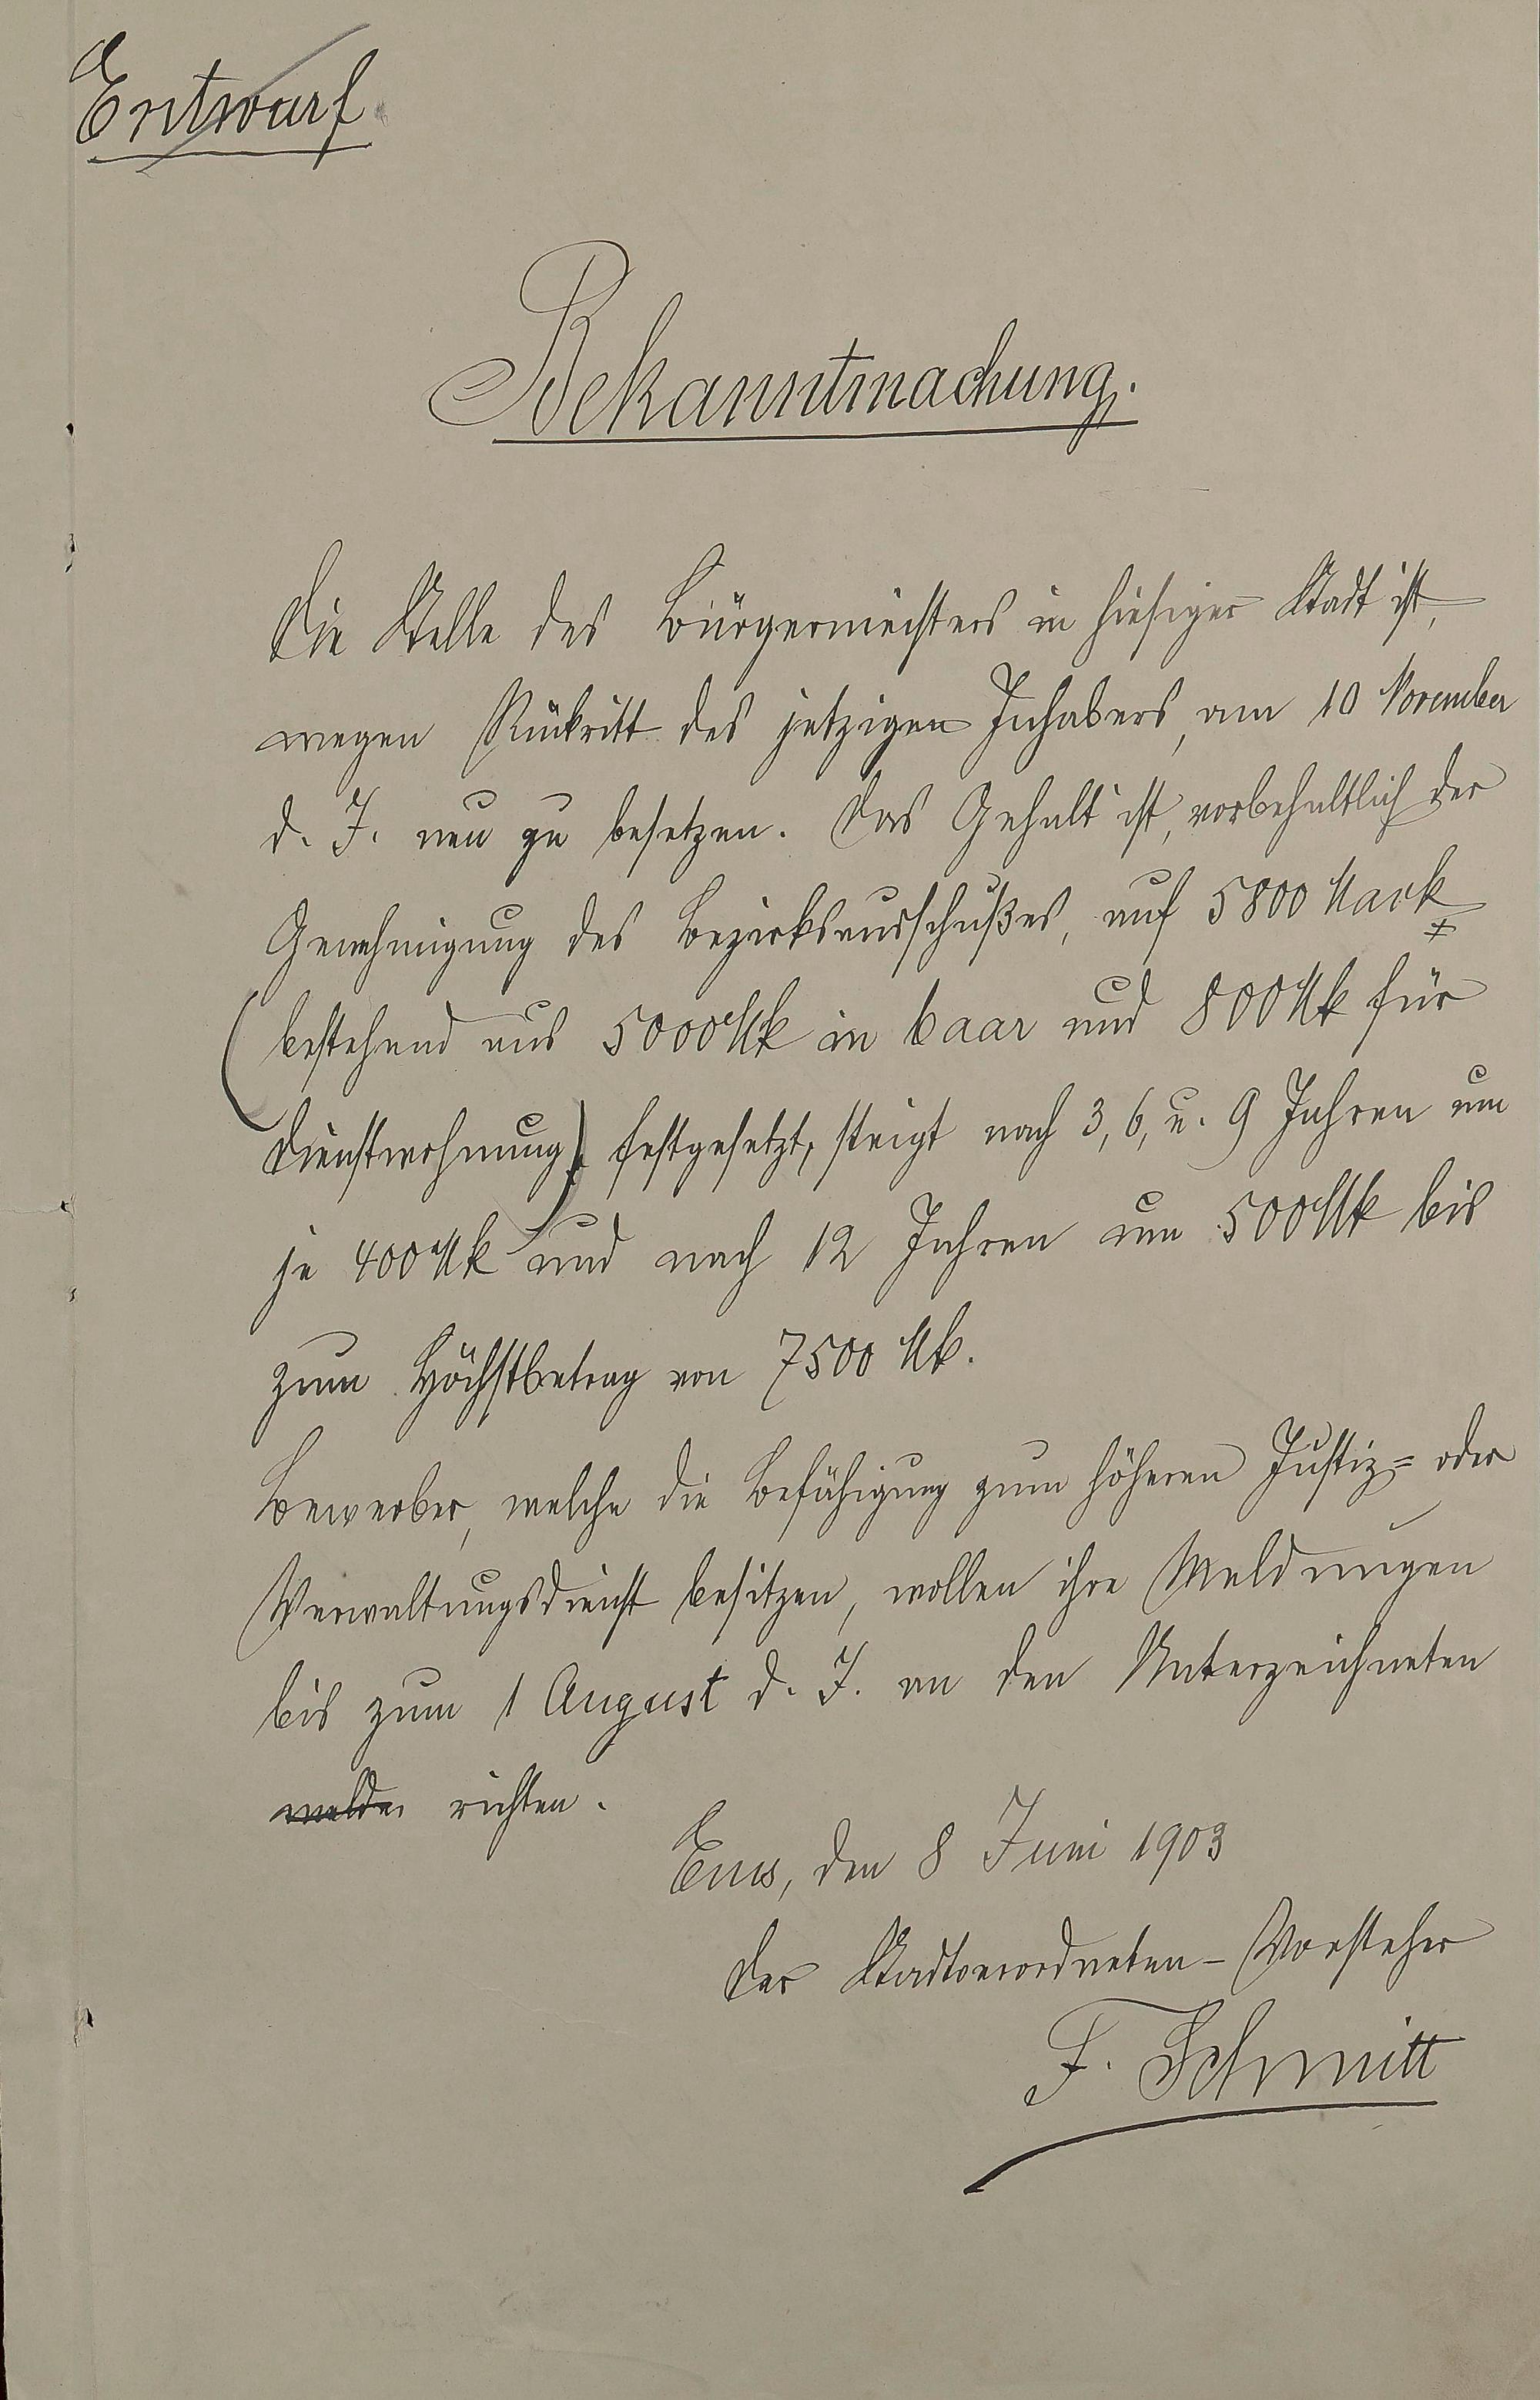 Entwurf.
Bekanntmachung.
Die Stelle des Bürgermeisters in hiesiger Stadt ist,
wegen Rückritt des jetzigen Inhabers, am 10 November
d. J. neu zu besetzen. Das Gehalt ist, vorbehaltlich der
Genehmigung des Bezirksausschußes, auf 5800 Mark
(bestehend aus 5000 Mk in baar und 800 Mk für
Dienstwohnung) festgesetzt, steigt nach 3, 6, u. 9 Jahren um
je 400 Mk und nach 12 Jahren um 500 Mk bis
zum Höchstbetrag von 7500 Mk.
Bewerber, welche die Befähigung zum höheren Justiz= oder
Verwaltungsdienst besitzen, wollen ihre Meldungen
bis zum 1 August d. J. an den Unterzeichneten
melden richten.
Ems, den 8 Juni 1903
Der Stadtverordneten-Vorsteher
F. Schmitt